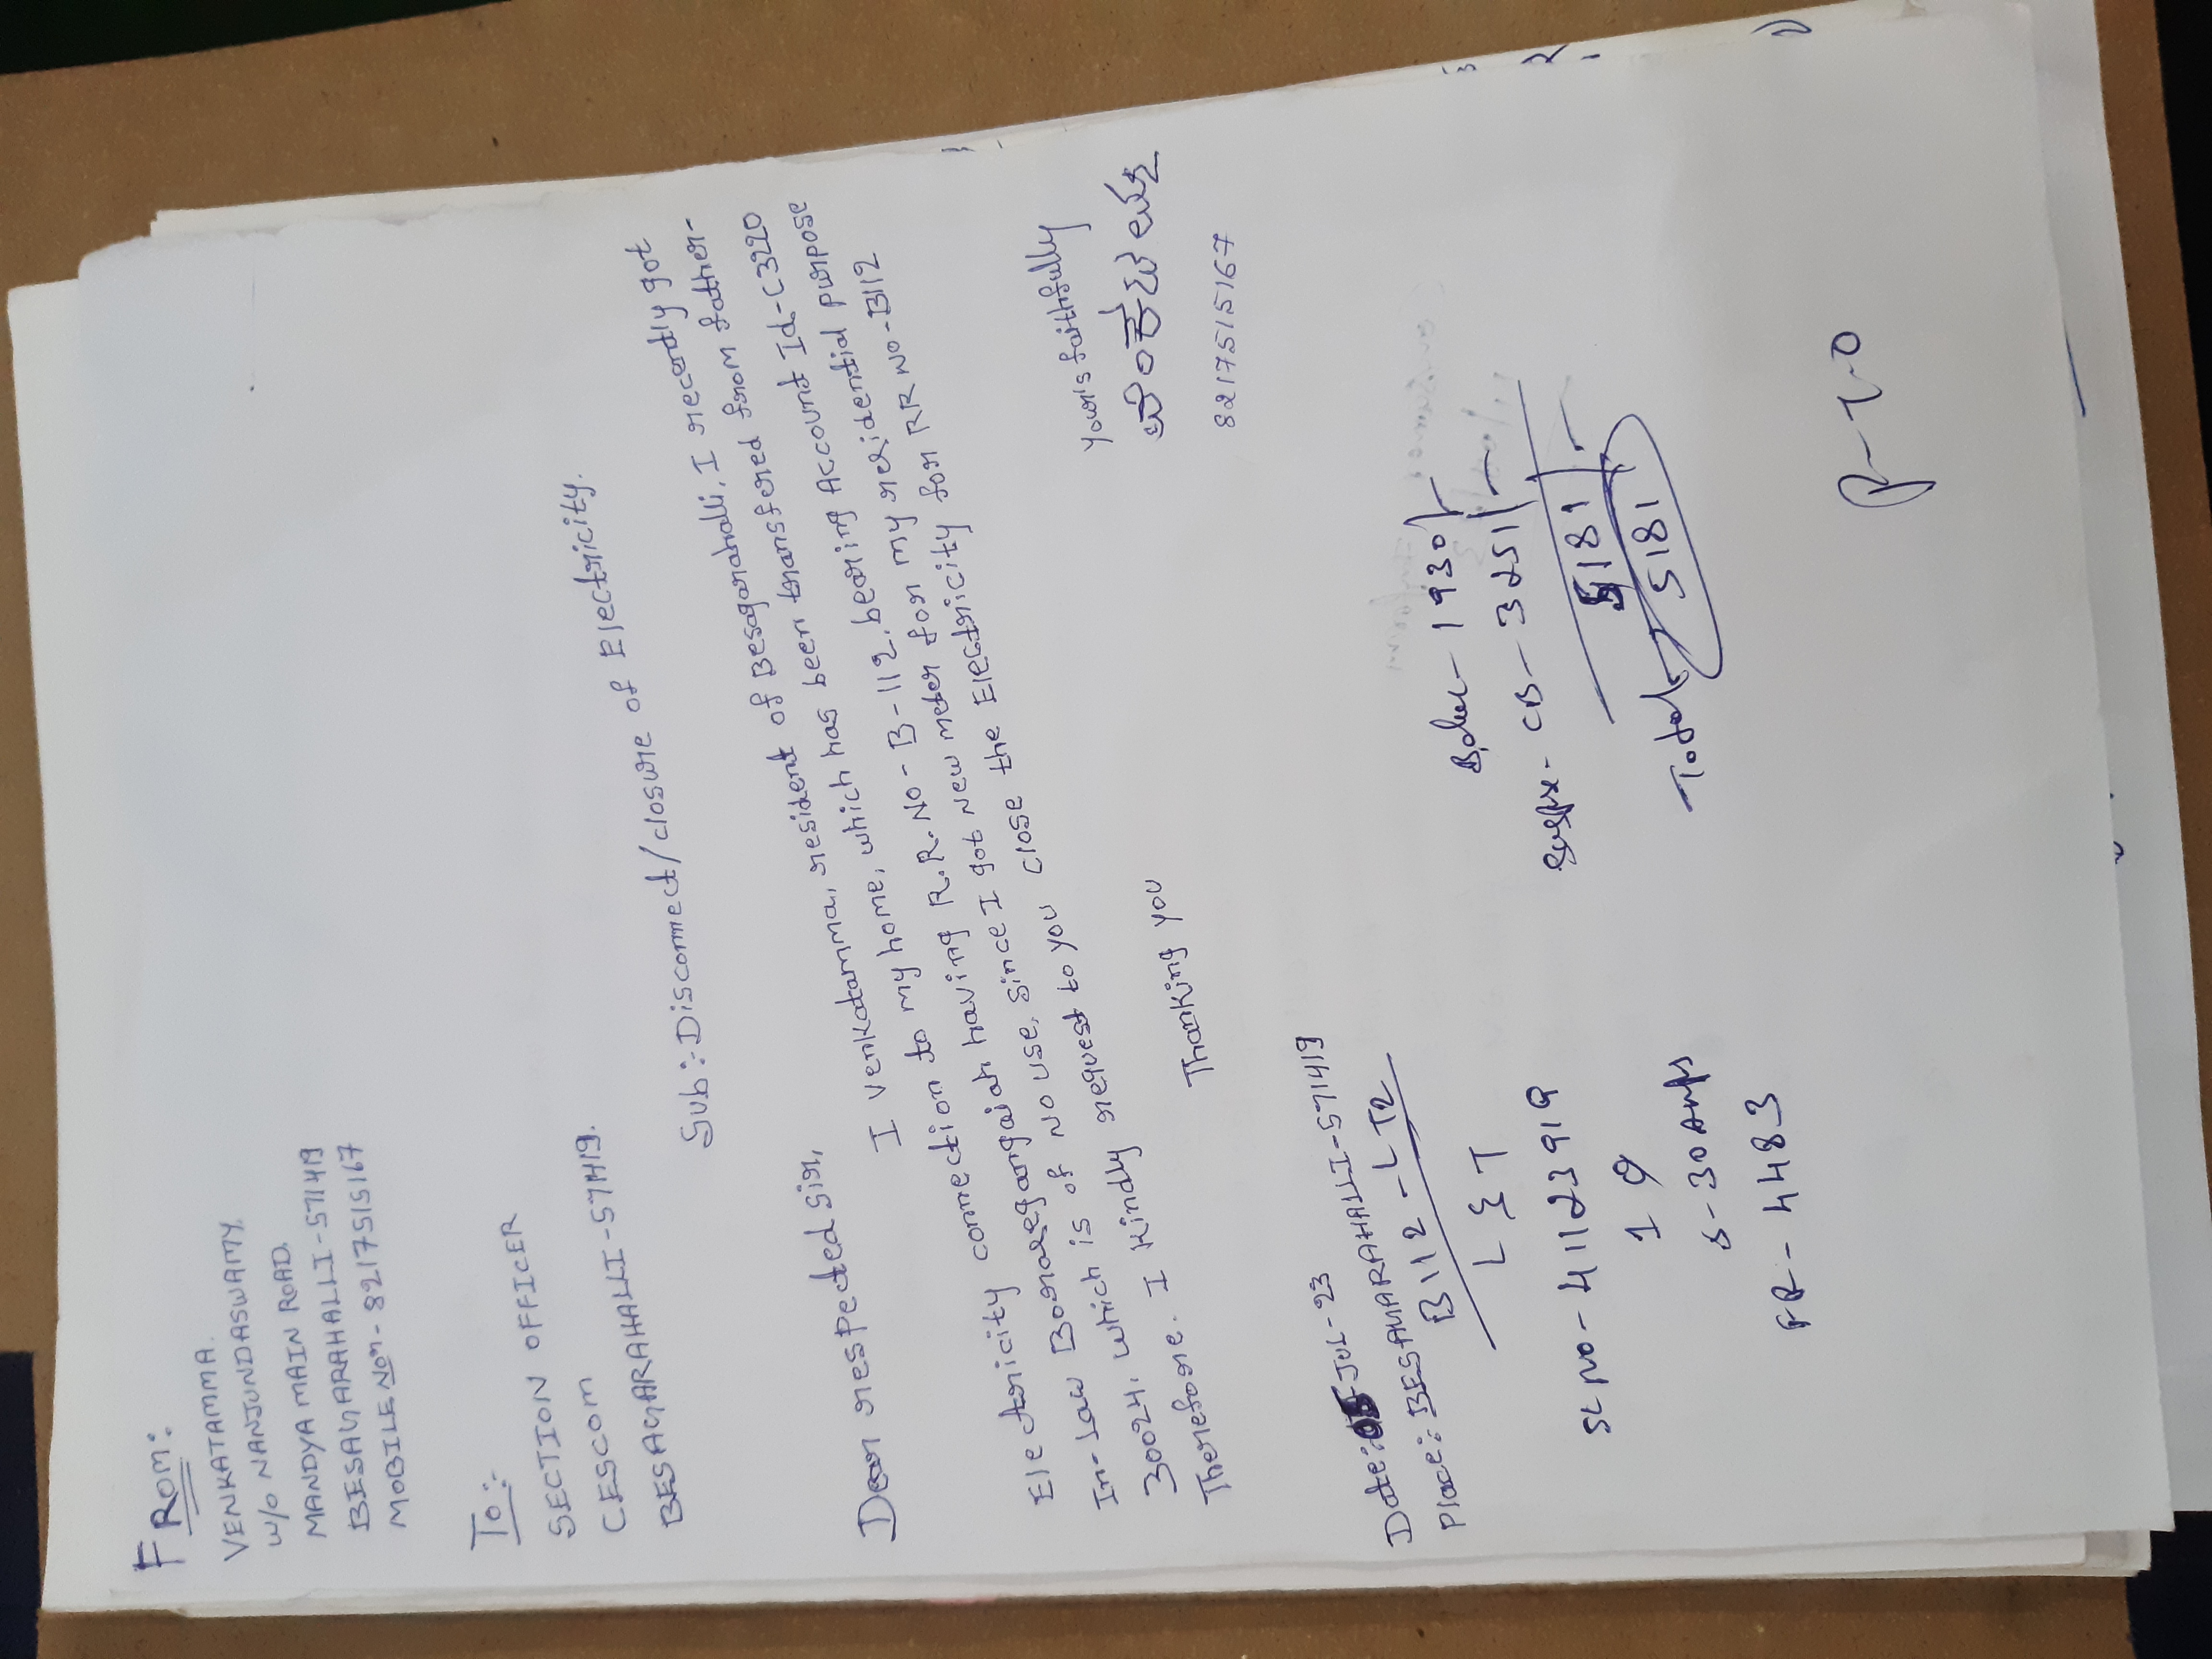 FROM:
VENKATAMMA.
W/O NANJUNDASWAMY
MANDYA MAIN ROAD.
BESAGARAHALLI-571419
MOBILE Nom-8217515167
To:
SECTION OFFICER
CESCOM
BESAGARAHALLI-571419.
Sub: Disconnect/closure of Electricity.
Dear respected sir,
I venkatamma, resident of Besagarahalli, I recently got
Electricity connection to my home, which has been transfered from father-
In-law Boregangaiah having R.R.NO-B-112, bearing Account Id-C3220
30024. which is of NO use, since I got New meter for my residential purpose
Therefore. I kindly request to you close the Electricity for RR NO-B112
Thanking you
Your's faithfully
ವೆಂಕಟಮ್ಮ
8217515167
Date: JUL-23
Place: BESAGARAHALLI-571419
B112-LT2
L & T
SL NO-41123919
1 Q
5-30 Amps
FR-4483
1930/-
CB-3251/-
5181/-
Total 5181
P-T-O